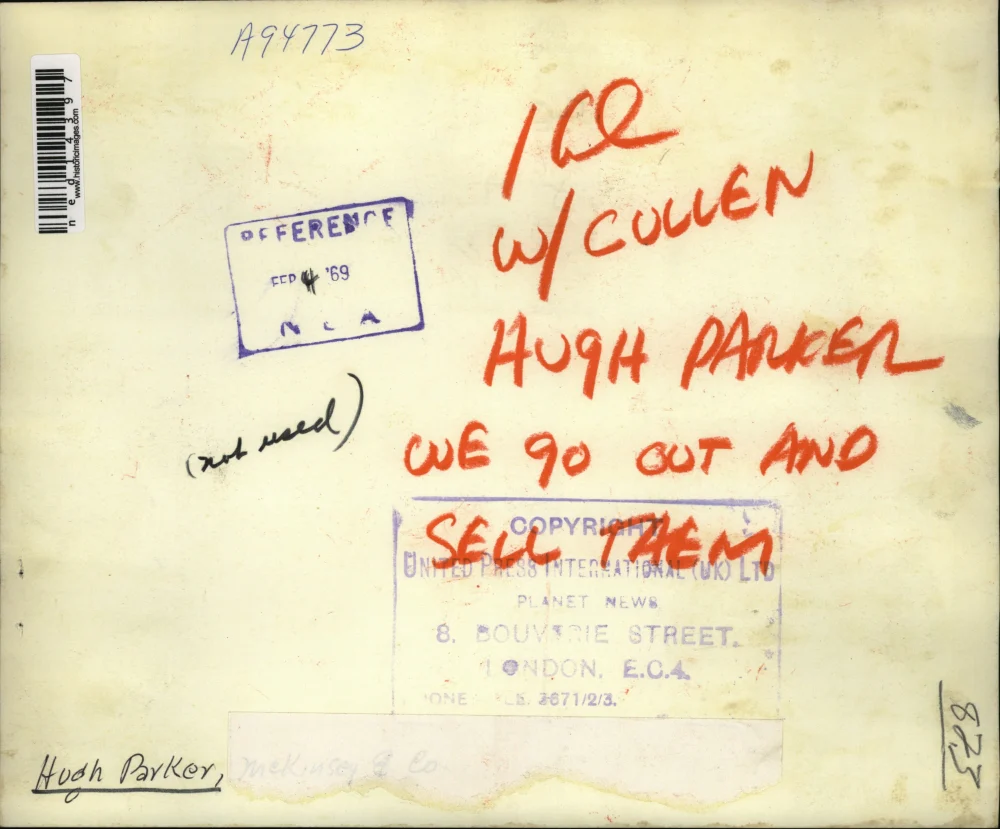 A94773
ned14397
www.historicimages.com
1 Col
W/ CULLEN
REFERENCE
FEB 4 '69
N E A
HUGH PARKER
(not used)
WE GO OUT AND
SELL THEM
COPYRIGHT
UNITED PRESS INTERNATIONAL (UK) LTD
PLANET NEWS
8, BOUVERIE STREET.
LONDON, E.C.4.
3671/2/3.
823
Hugh Parker,
McKinsey & Co